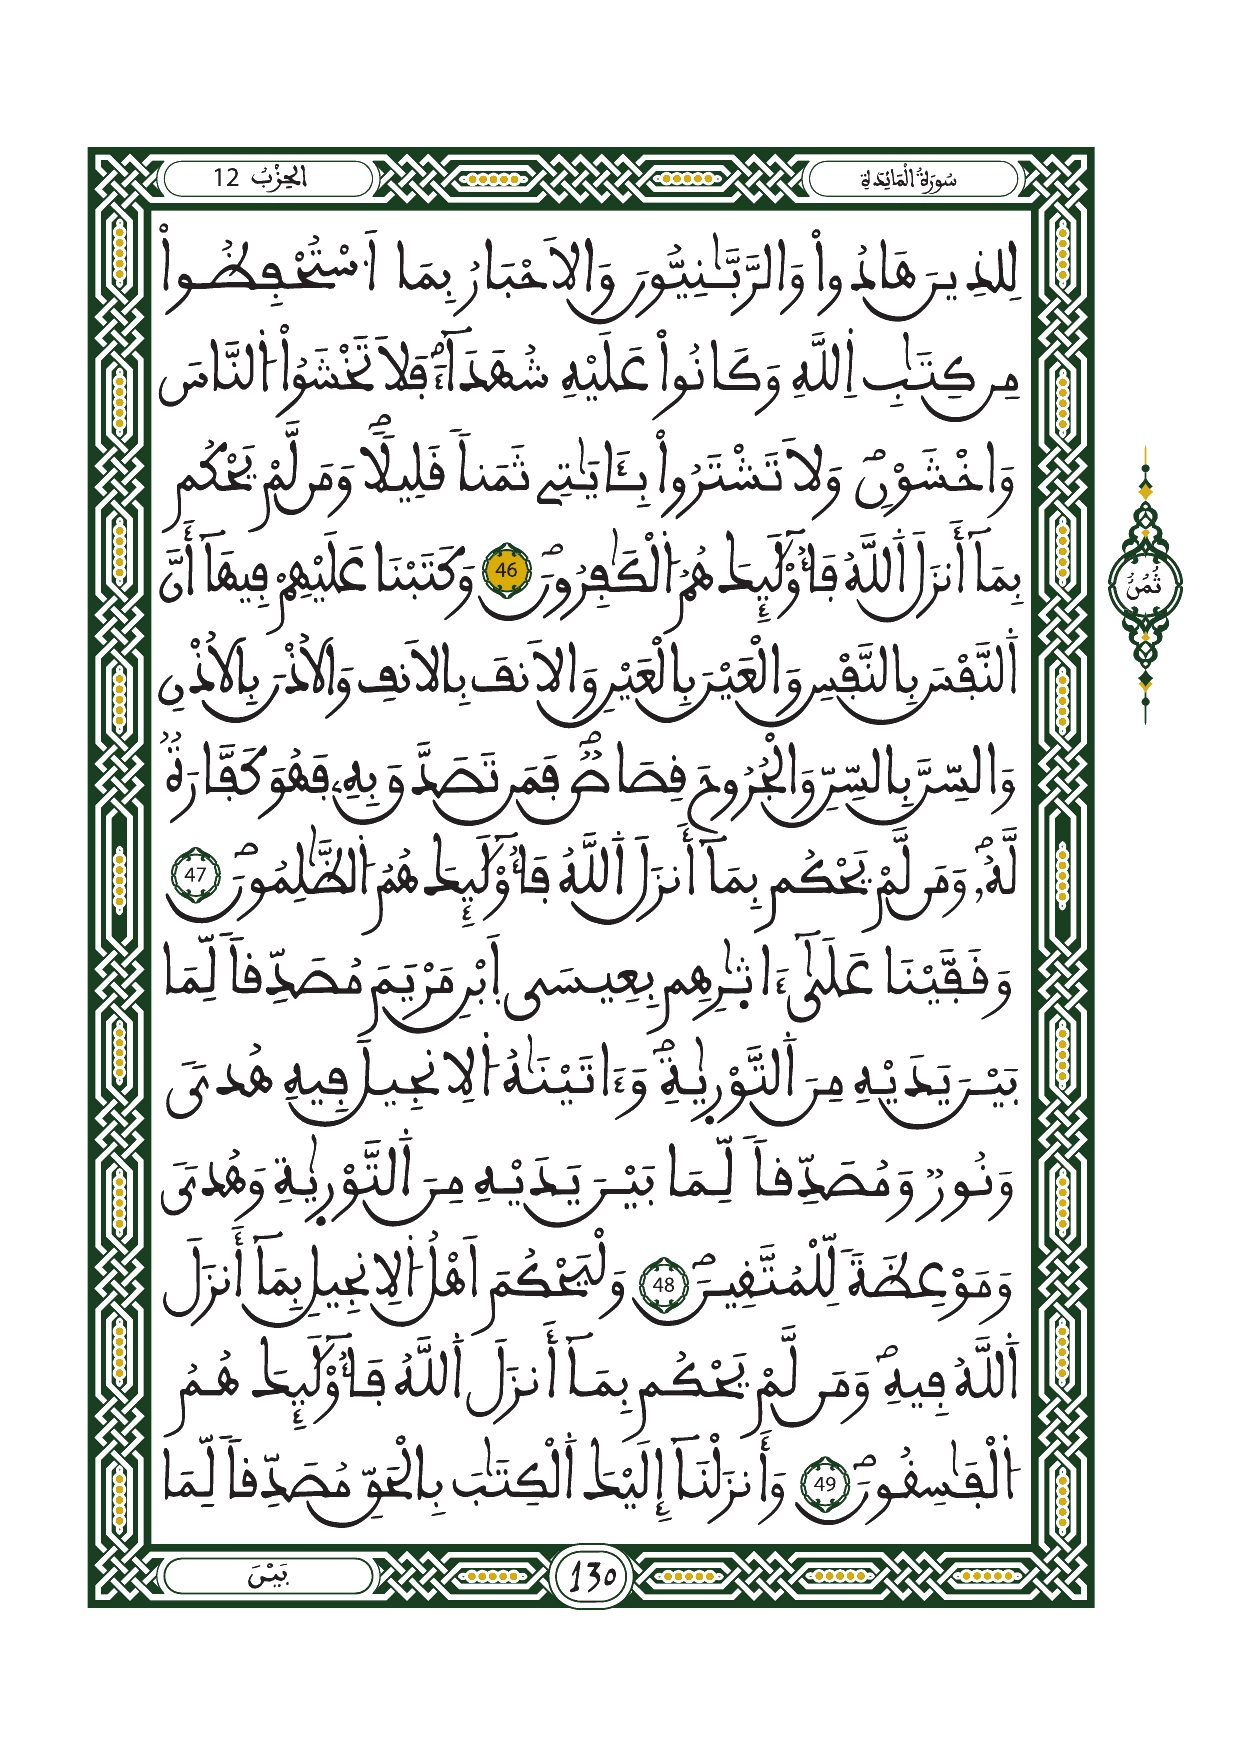 سُورَةُ الْمَائِدَةِ
الحِزْبُ 12
لِلذِينَ هَادُواْ وَالرَّبَّٰنِيُّونَ وَالَاحْبَارُ بِمَا اَ۟سْتُحْفِظُواْ
مِن كِتَٰبِ اِ۬للَّهِ وَكَانُواْ عَلَيْهِ شُهَدَآءَۖ فَلَا تَخْشَوُاْ اُ۬لنَّاسَ
وَاخْشَوْنِۖ وَلَا تَشْتَرُواْ بِـَٔايَٰتِے ثَمَناٗ قَلِيلاٗۖ وَمَن لَّمْ يَحْكُم
بِمَآ أَنزَلَ اَ۬للَّهُ فَأُوْلَٰٓئِكَ هُمُ اُ۬لْكَٰفِرُونَۖ 46 وَكَتَبْنَا عَلَيْهِمْ فِيهَآ أَنَّ
اَ۬لنَّفْسَ بِالنَّفْسِ وَالْعَيْنَ بِالْعَيْنِ وَالَانفَ بِالَانفِ وَالُاذْنَ بِالُاذْنِ
وَالسِّنَّ بِالسِّنِّ وَالْجُرُوحَ قِصَاصٞۖ فَمَن تَصَدَّقَ بِهِۦ فَهُوَ كَفَّارَةٞ
لَّهُۥۖ وَمَن لَّمْ يَحْكُم بِمَآ أَنزَلَ اَ۬للَّهُ فَأُوْلَٰٓئِكَ هُمُ اُ۬لظَّٰلِمُونَۖ 47
وَقَفَّيْنَا عَلَىٰٓ ءَاثٰ۪رِهِم بِعِيسَى اَ۪بْنِ مَرْيَمَ مُصَدِّقاٗ لِّمَا
بَيْنَ يَدَيْهِ مِنَ اَ۬لتَّوْر۪يٰةِۖ وَءَاتَيْنَٰهُ اُ۬لِانجِيلَ فِيهِ هُدىٗ
وَنُورٞ وَمُصَدِّقاٗ لِّمَا بَيْنَ يَدَيْهِ مِنَ اَ۬لتَّوْر۪يٰةِ وَهُدىٗ
وَمَوْعِظَةٗ لِّلْمُتَّقِينَۖ 48 وَلْيَحْكُمَ اَهْلُ اُ۬لِانجِيلِ بِمَآ أَنزَلَ
اَ۬للَّهُ فِيهِۖ وَمَن لَّمْ يَحْكُم بِمَآ أَنزَلَ اَ۬للَّهُ فَأُوْلَٰٓئِكَ هُمُ
اُ۬لْفَٰسِقُونَۖ 49 وَأَنزَلْنَآ إِلَيْكَ اَ۬لْكِتَٰبَ بِالْحَقِّ مُصَدِّقاٗ لِّمَا
ثُمُنُ
130
بَيْنَ